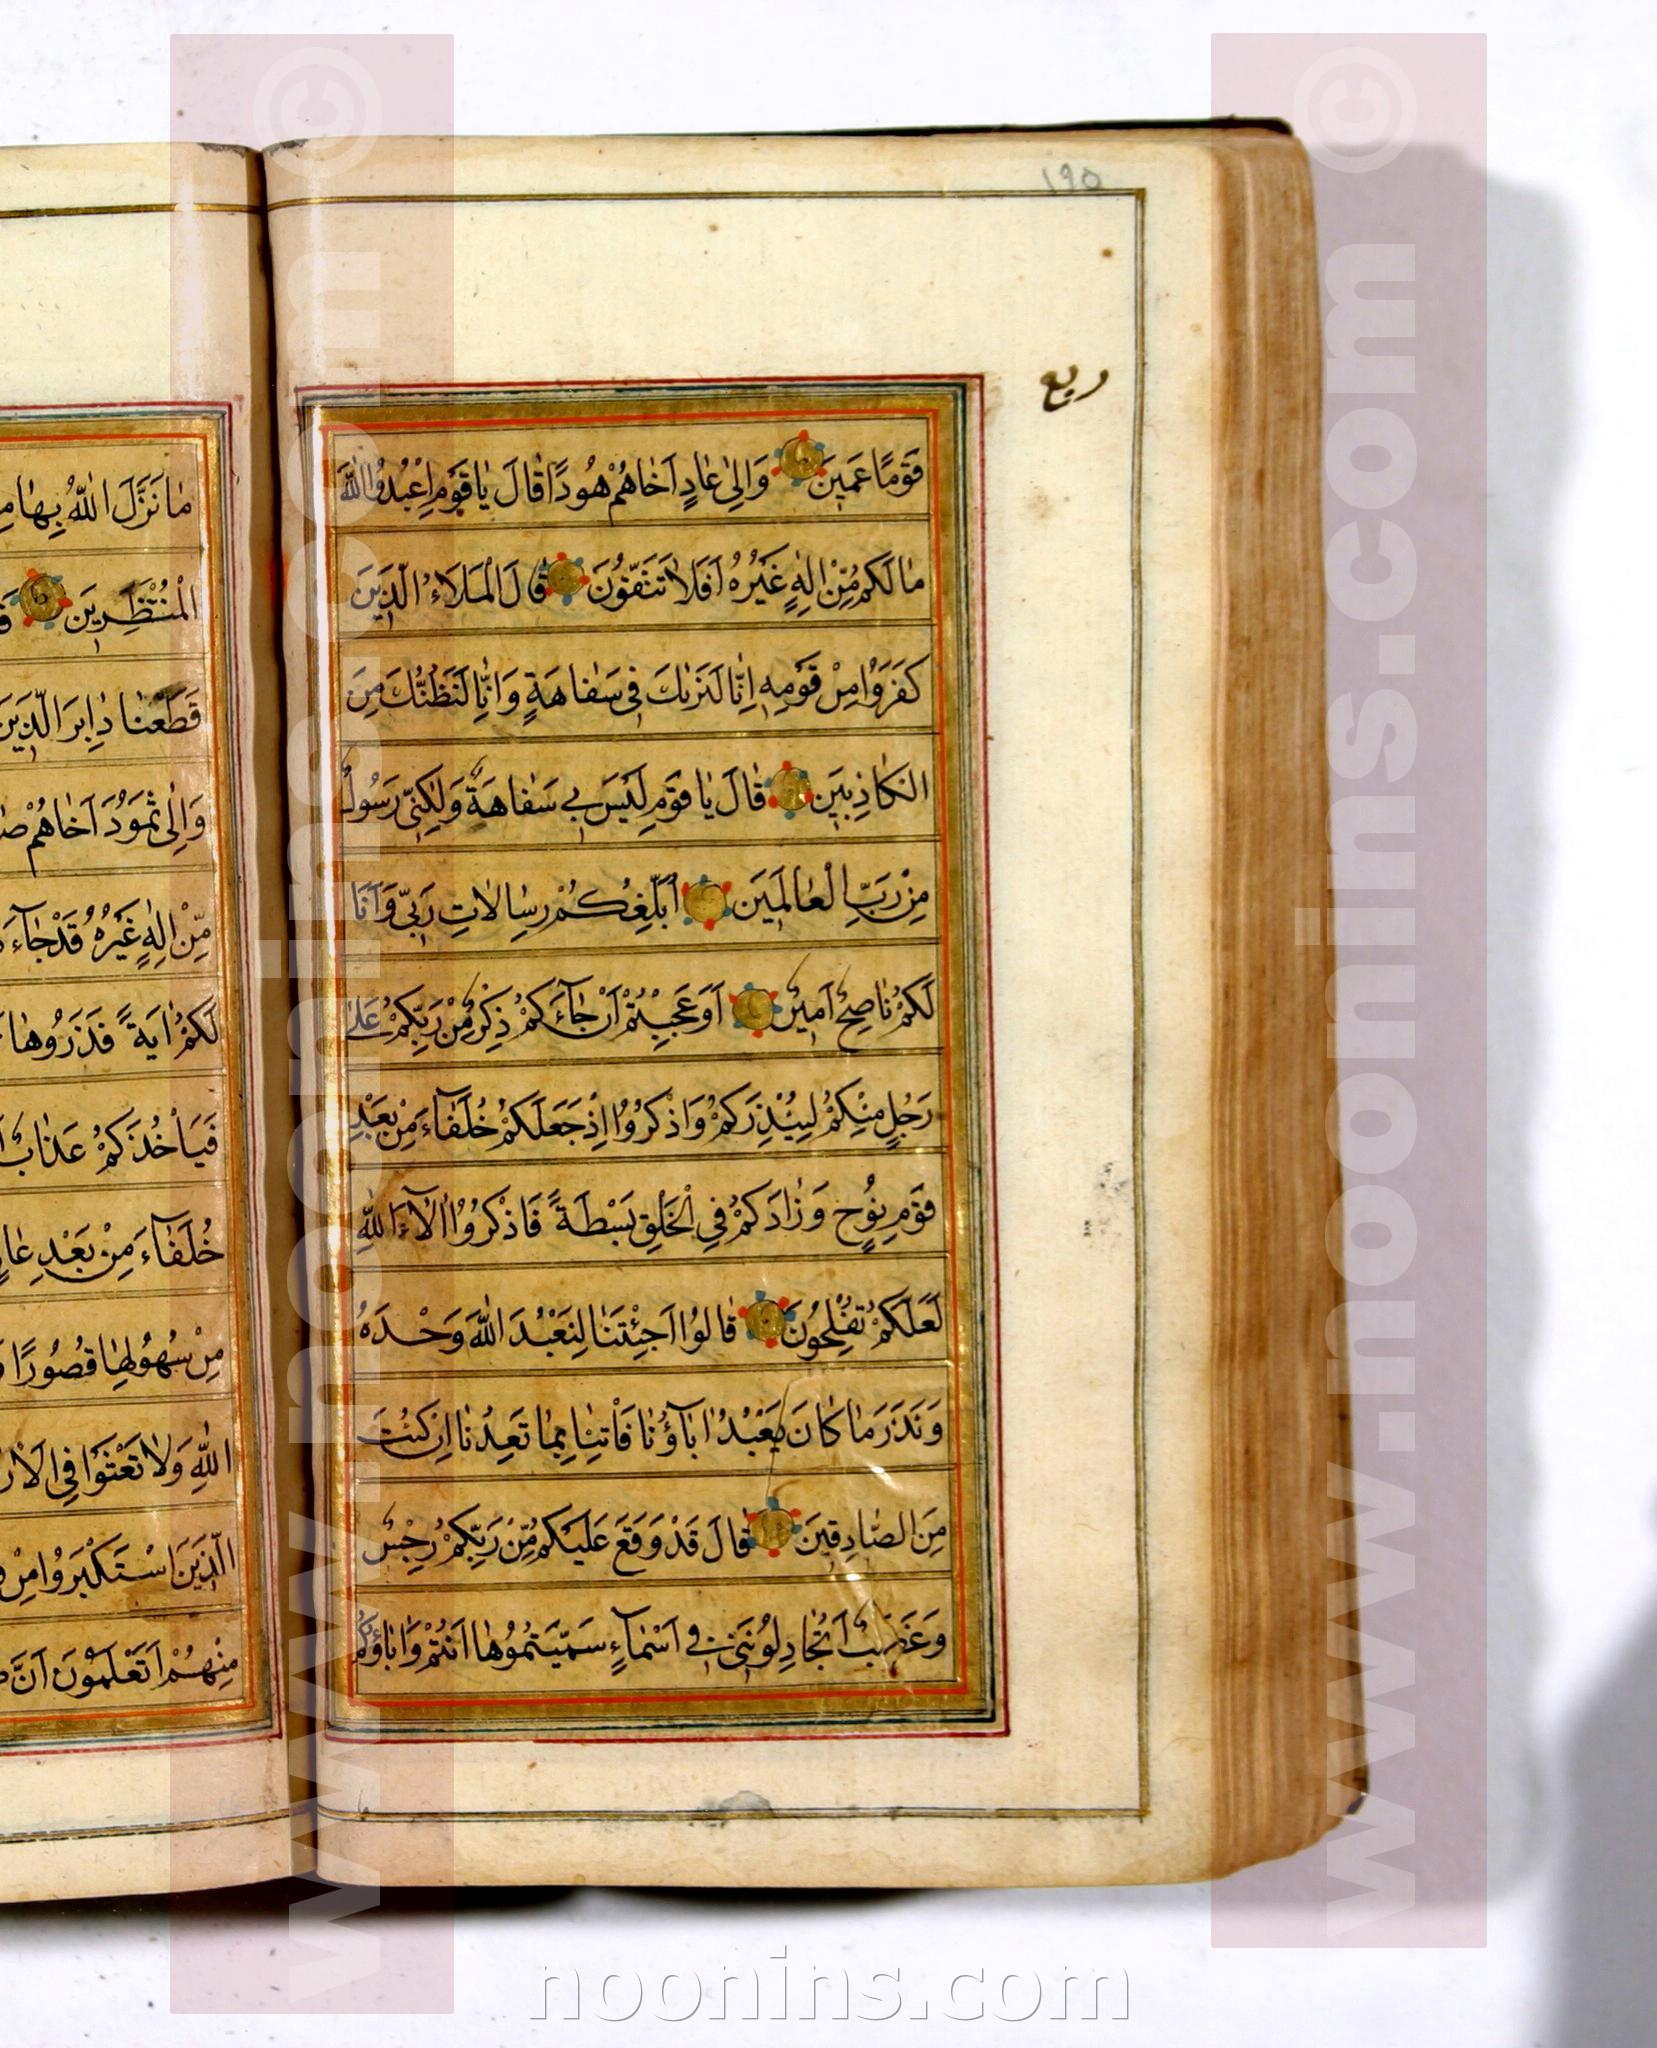 ١٩٥
ربع
قَوْمًا عَمِينَ وَاِلىٰ عٰادٍ اَخٰاهُمْ هُودًا قٰالَ يٰا قَوْمِ اعْبُدُوا اللّٰهَ
مٰا لَكُمْ مِنْ اِلٰهٍ غَيْرُهُ اَفَلاٰ تَتَّقُونَ قٰالَ الْمَلَاءُ الَّذِينَ
كَفَرُوا مِنْ قَوْمِهِ اِنّٰا لَنَرٰيكَ فِي سَفٰاهَةٍ وَاِنّٰا لَنَظُنُّكَ مِنَ
الْكٰاذِبِينَ قٰالَ يٰا قَوْمِ لَيْسَ بِي سَفٰاهَةٌ وَلٰكِنِّي رَسُولٌ
مِنْ رَبِّ الْعٰالَمِينَ اُبَلِّغُكُمْ رِسٰالاٰتِ رَبِّي وَاَنَا
لَكُمْ نٰاصِحٌ اَمِينٌ اَوَعَجِبْتُمْ اَنْ جٰآءَكُمْ ذِكْرٌ مِنْ رَبِّكُمْ عَلىٰ
رَجُلٍ مِنْكُمْ لِيُنْذِرَكُمْ وَاذْكُرُوا اِذْ جَعَلَكُمْ خُلَفٰآءَ مِنْ بَعْدِ
قَوْمِ نُوحٍ وَزٰادَكُمْ فِي الْخَلْقِ بَسْطَةً فَاذْكُرُوا اٰلاٰءَ اللّٰهِ
لَعَلَّكُمْ تُفْلِحُونَ قٰالُوا اَجِئْتَنٰا لِنَعْبُدَ اللّٰهَ وَحْدَهُ
وَنَذَرَ مٰا كٰانَ يَعْبُدُ اٰبٰآؤُنٰا فَاْتِنٰا بِمٰا تَعِدُنٰا اِنْ كُنْتَ
مِنَ الصّٰادِقِينَ قٰالَ قَدْ وَقَعَ عَلَيْكُمْ مِنْ رَبِّكُمْ رِجْسٌ
وَغَضَبٌ اَتُجٰادِلُونَنِي فِي اَسْمٰآءٍ سَمَّيْتُمُوهٰا اَنْتُمْ وَاٰبٰاؤُكُمْ
مٰا نَزَّلَ اللّٰهُ بِهٰا
الْمُنْتَظِرِينَ
قَطَعْنٰا دٰابِرَ الَّذِينَ
وَاِلىٰ ثَمُودَ اَخٰاهُمْ
مِنْ اِلٰهٍ غَيْرُهُ قَدْ جٰآءَ
لَكُمْ اٰيَةً فَذَرُوهٰا
فَيَاْخُذَكُمْ عَذٰابٌ
خُلَفٰآءَ مِنْ بَعْدِ عٰادٍ
مِنْ سُهُولِهٰا قُصُورًا
اللّٰهِ وَلاٰ تَعْثَوْا فِي الْاَرْ
الَّذِينَ اسْتَكْبَرُوا مِنْ
مِنْهُمْ اَتَعْلَمُونَ اَنَّ
www.noonins.com ©
www.noonins.com ©
noonins.com